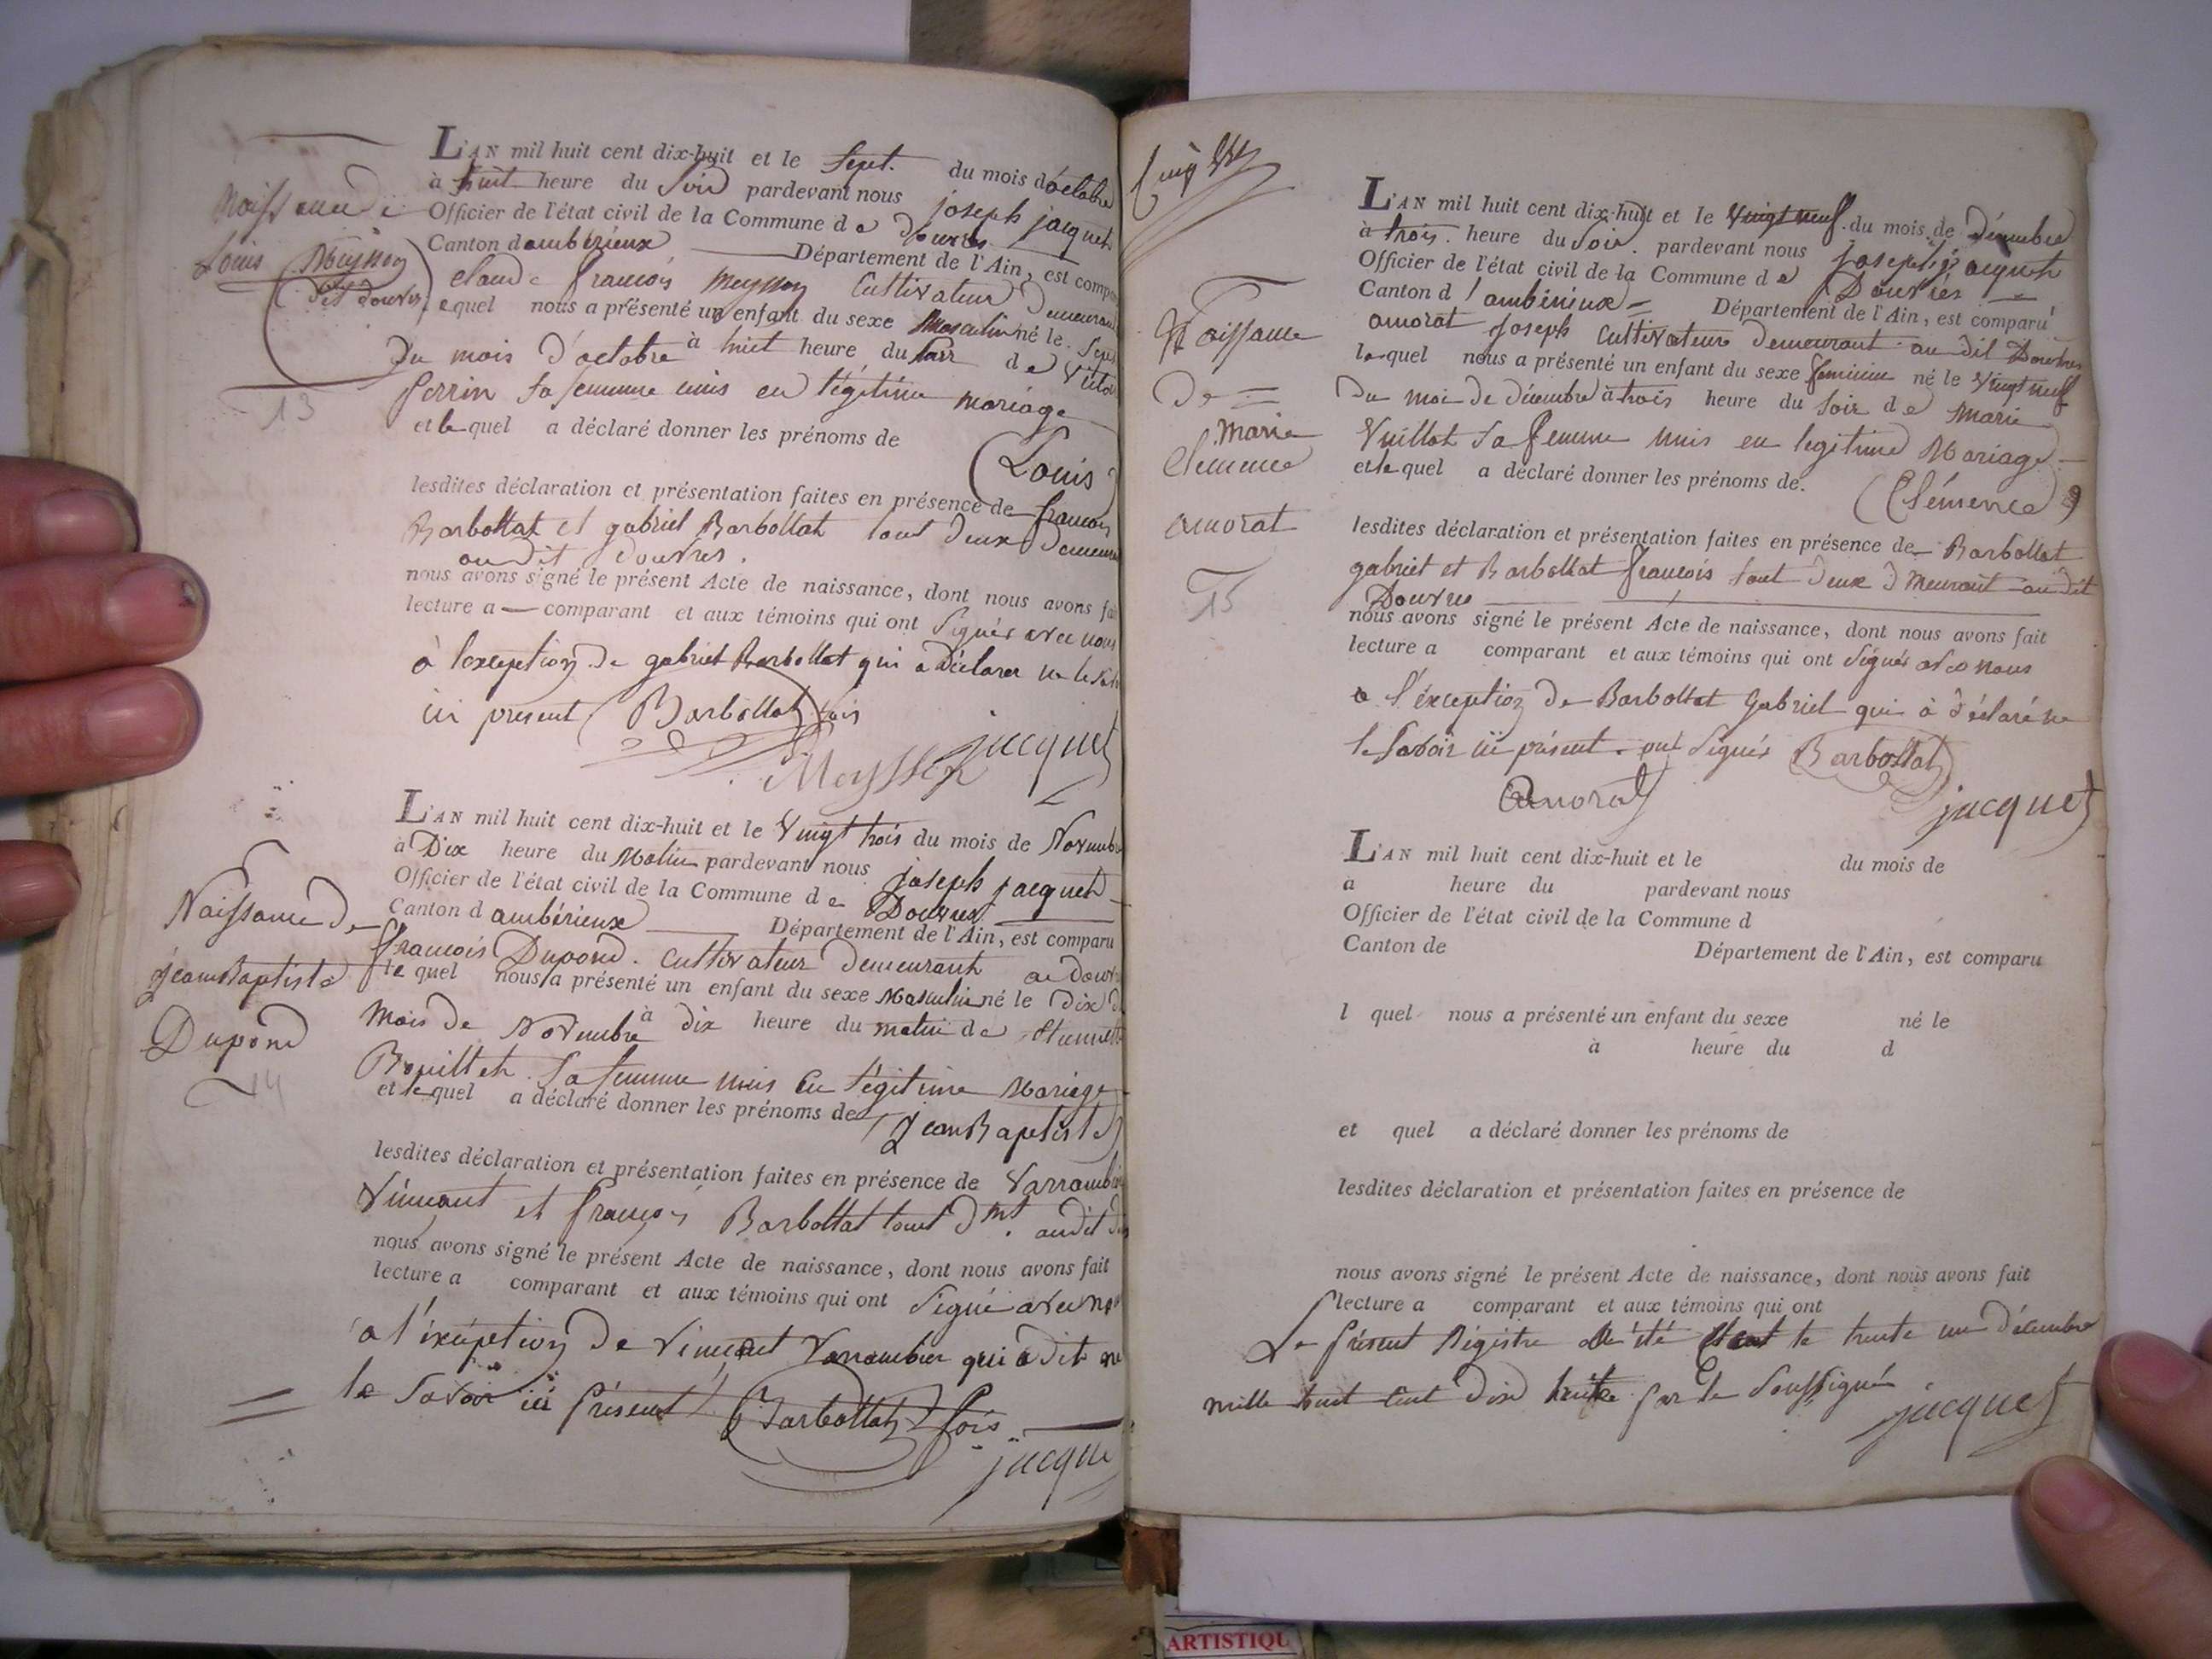 Naissance de
Louis Meysson
dit douvres
13
L'AN mil huit cent dix-huit et le Sept. du mois d'octobre
à huit heure du Soir pardevant nous joseph jacquet
Officier de l'état civil de la Commune de Douvres
Canton d ambérieux Département de l'Ain, est compa
claude francois Meysson Cultivateur Demeurant
lequel nous a présenté un enfant du sexe Masculin né le Sept
Du mois d'octobre à huit heure du Soir de
perrin Sa femme unis en légitime mariage
et lequel a déclaré donner les prénoms de
(Louis)
lesdites déclaration et présentation faites en présence de francois
Barbollat et gabriel Barbollat tout Deux Demeurant
audit Douvres.
nous avons signé le présent Acte de naissance, dont nous avons fai
lecture a — comparant et aux témoins qui ont Signés avec nous
à l'exception de gabriel Barbollat qui a Déclarer ne le
ici present Barbollat fois
jacquet
Meysson
Naissance de
jean Baptiste
Dupond
14
L'AN mil huit cent dix-huit et le Vingt trois du mois de Novembre
à Dix heure du Matin pardevant nous joseph jacquet
Officier de l'état civil de la Commune de Douvres
Canton d ambérieux Département de l'Ain, est comparu
francois Dupond. cultivateur Demeurant a Douvres
lequel nous a présenté un enfant du sexe Masculin né le Dix d
Mois de Novembre à dix heure du matin de
Sa femme unis en légitime Mariage
et lequel a déclaré donner les prénoms de
(Jean Baptiste)
lesdites déclaration et présentation faites en présence de
Vincent et françois Barbollat tout Dmt. audit
nous avons signé le présent Acte de naissance, dont nous avons fait
lecture a comparant et aux témoins qui ont Signé avec
a l'éxception de Vincent Varambier qui a Dit ne
le Savoir ici présent Barbollat fois
jacque
L'AN mil huit cent dix-huit et le Vingt neuf. du mois de Décembre
à trois. heure du Soir. pardevant nous joseph jacquet
Officier de l'état civil de la Commune de Douvres
Canton d'ambérieux Département de l'Ain, est comparu
Naissance
De
Marie
Clemence
amorat
15
amorat joseph Cultivateur Demeurant au dit Douvres
lequel nous a présenté un enfant du sexe feminin né le Vingt neuf
Du moi de décembre à trois heure du Soir de Marie
Vuillot Sa femme unis en legitime Mariage
et lequel a déclaré donner les prénoms de.
(Clémence)
lesdites déclaration et présentation faites en présence de Barbollat
gabriel et Barbollat francois tout Deux Dmeurant au dit
Douvres
nous avons signé le présent Acte de naissance, dont nous avons fait
lecture a comparant et aux témoins qui ont Signés avec nous
a l'éxception de Barbollat Gabriel qui à Déclaré ne
le Savoir ici présent. ont Signés Barbollat
amorat
jacquet
L'AN mil huit cent dix-huit et le du mois de
à heure du pardevant nous
Officier de l'état civil de la Commune d
Canton de Département de l'Ain, est comparu
l quel nous a présenté un enfant du sexe né le
à heure du d
et quel a déclaré donner les prénoms de
lesdites déclaration et présentation faites en présence de
nous avons signé le présent Acte de naissance, dont nous avons fait
lecture a comparant et aux témoins qui ont
Le présent Régistre été le trente un Décembre
mille huit Cent Dix huit par le Soussigné
jacquet
ARTISTIQU